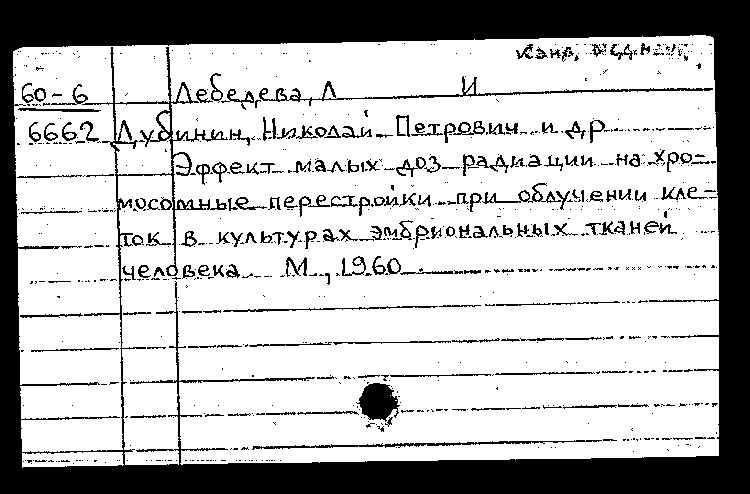 60-6 Лебедева, Л И
6662 Дубинин, Николай Петрович и др
Эффект малых доз радиации на хро-
мосомные перестройки при облучении кле-
ток в культурах эмбриональных тканей
человека. М, 1960.